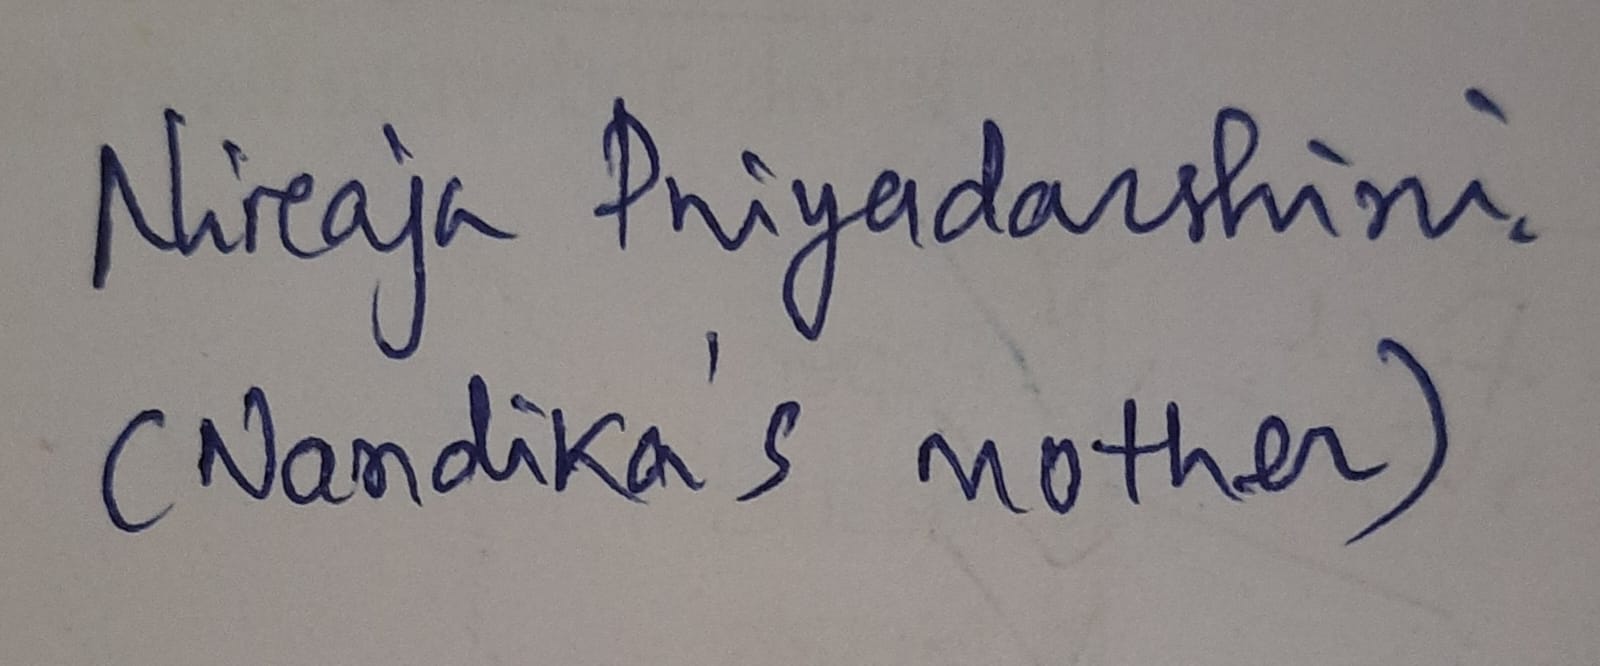 Niraja Priyadarshini.
(Nandika's mother)